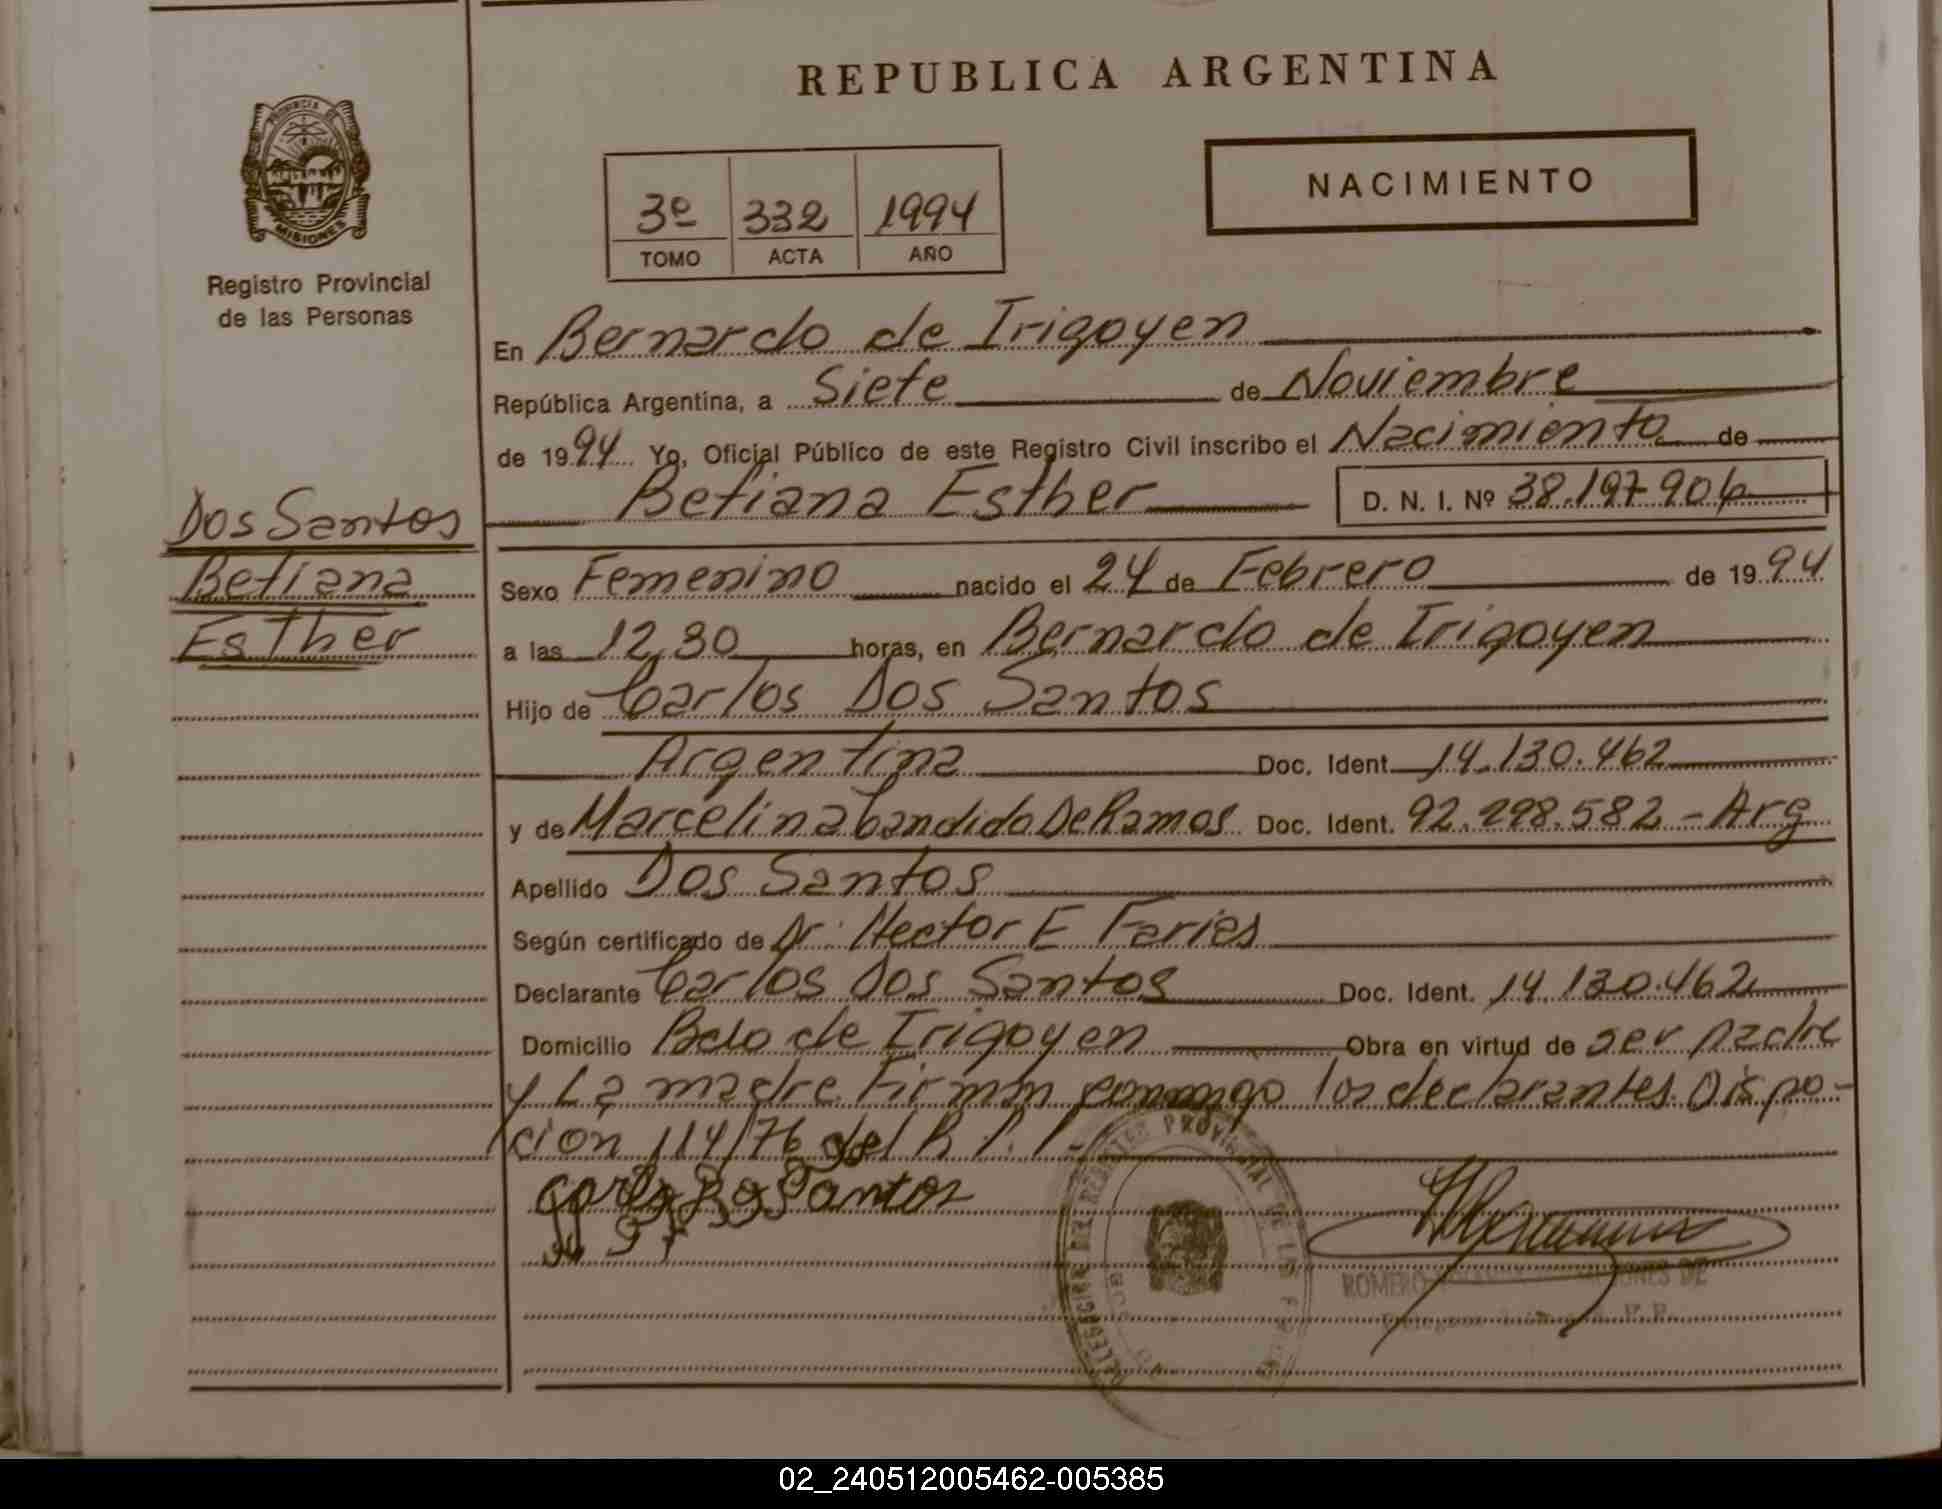 REPUBLICA ARGENTINA
PROVINCIA DE
MISIONES
Registro Provincial
de las Personas
3º 332 1994
TOMO ACTA AÑO
NACIMIENTO
En Bernardo de Irigoyen
República Argentina, a Siete de Noviembre
de 1994 Yo, Oficial Público de este Registro Civil inscribo el Nacimiento de
Betiana Esther D. N. I. Nº 38.197.906
Dos Santos
Betiana
Esther
Sexo Femenino nacido el 24 de Febrero de 1994
a las 12,30 horas, en Bernardo de Irigoyen
Hijo de Carlos Dos Santos
Argentina Doc. Ident. 14.130.462
y de Marcelina Candido De Ramos Doc. Ident. 92.298.582 - Arg
Apellido Dos Santos
Según certificado de Dr. Hector E Faries
Declarante Carlos Dos Santos Doc. Ident. 14.130.462
Domicilio Bdo de Irigoyen Obra en virtud de ser padre
y La madre. Firman conmigo los declarantes. Dispo-
cion 114/76 del R.P.P.-
Carlos Do Santos
ROMERO DE
02_240512005462-005385